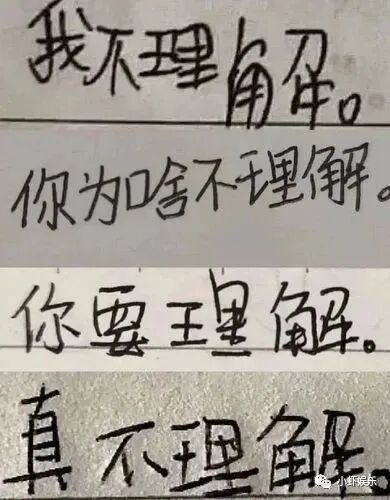 我不理解。
你为啥不理解。
你要理解。
真不理解
小虾娱乐